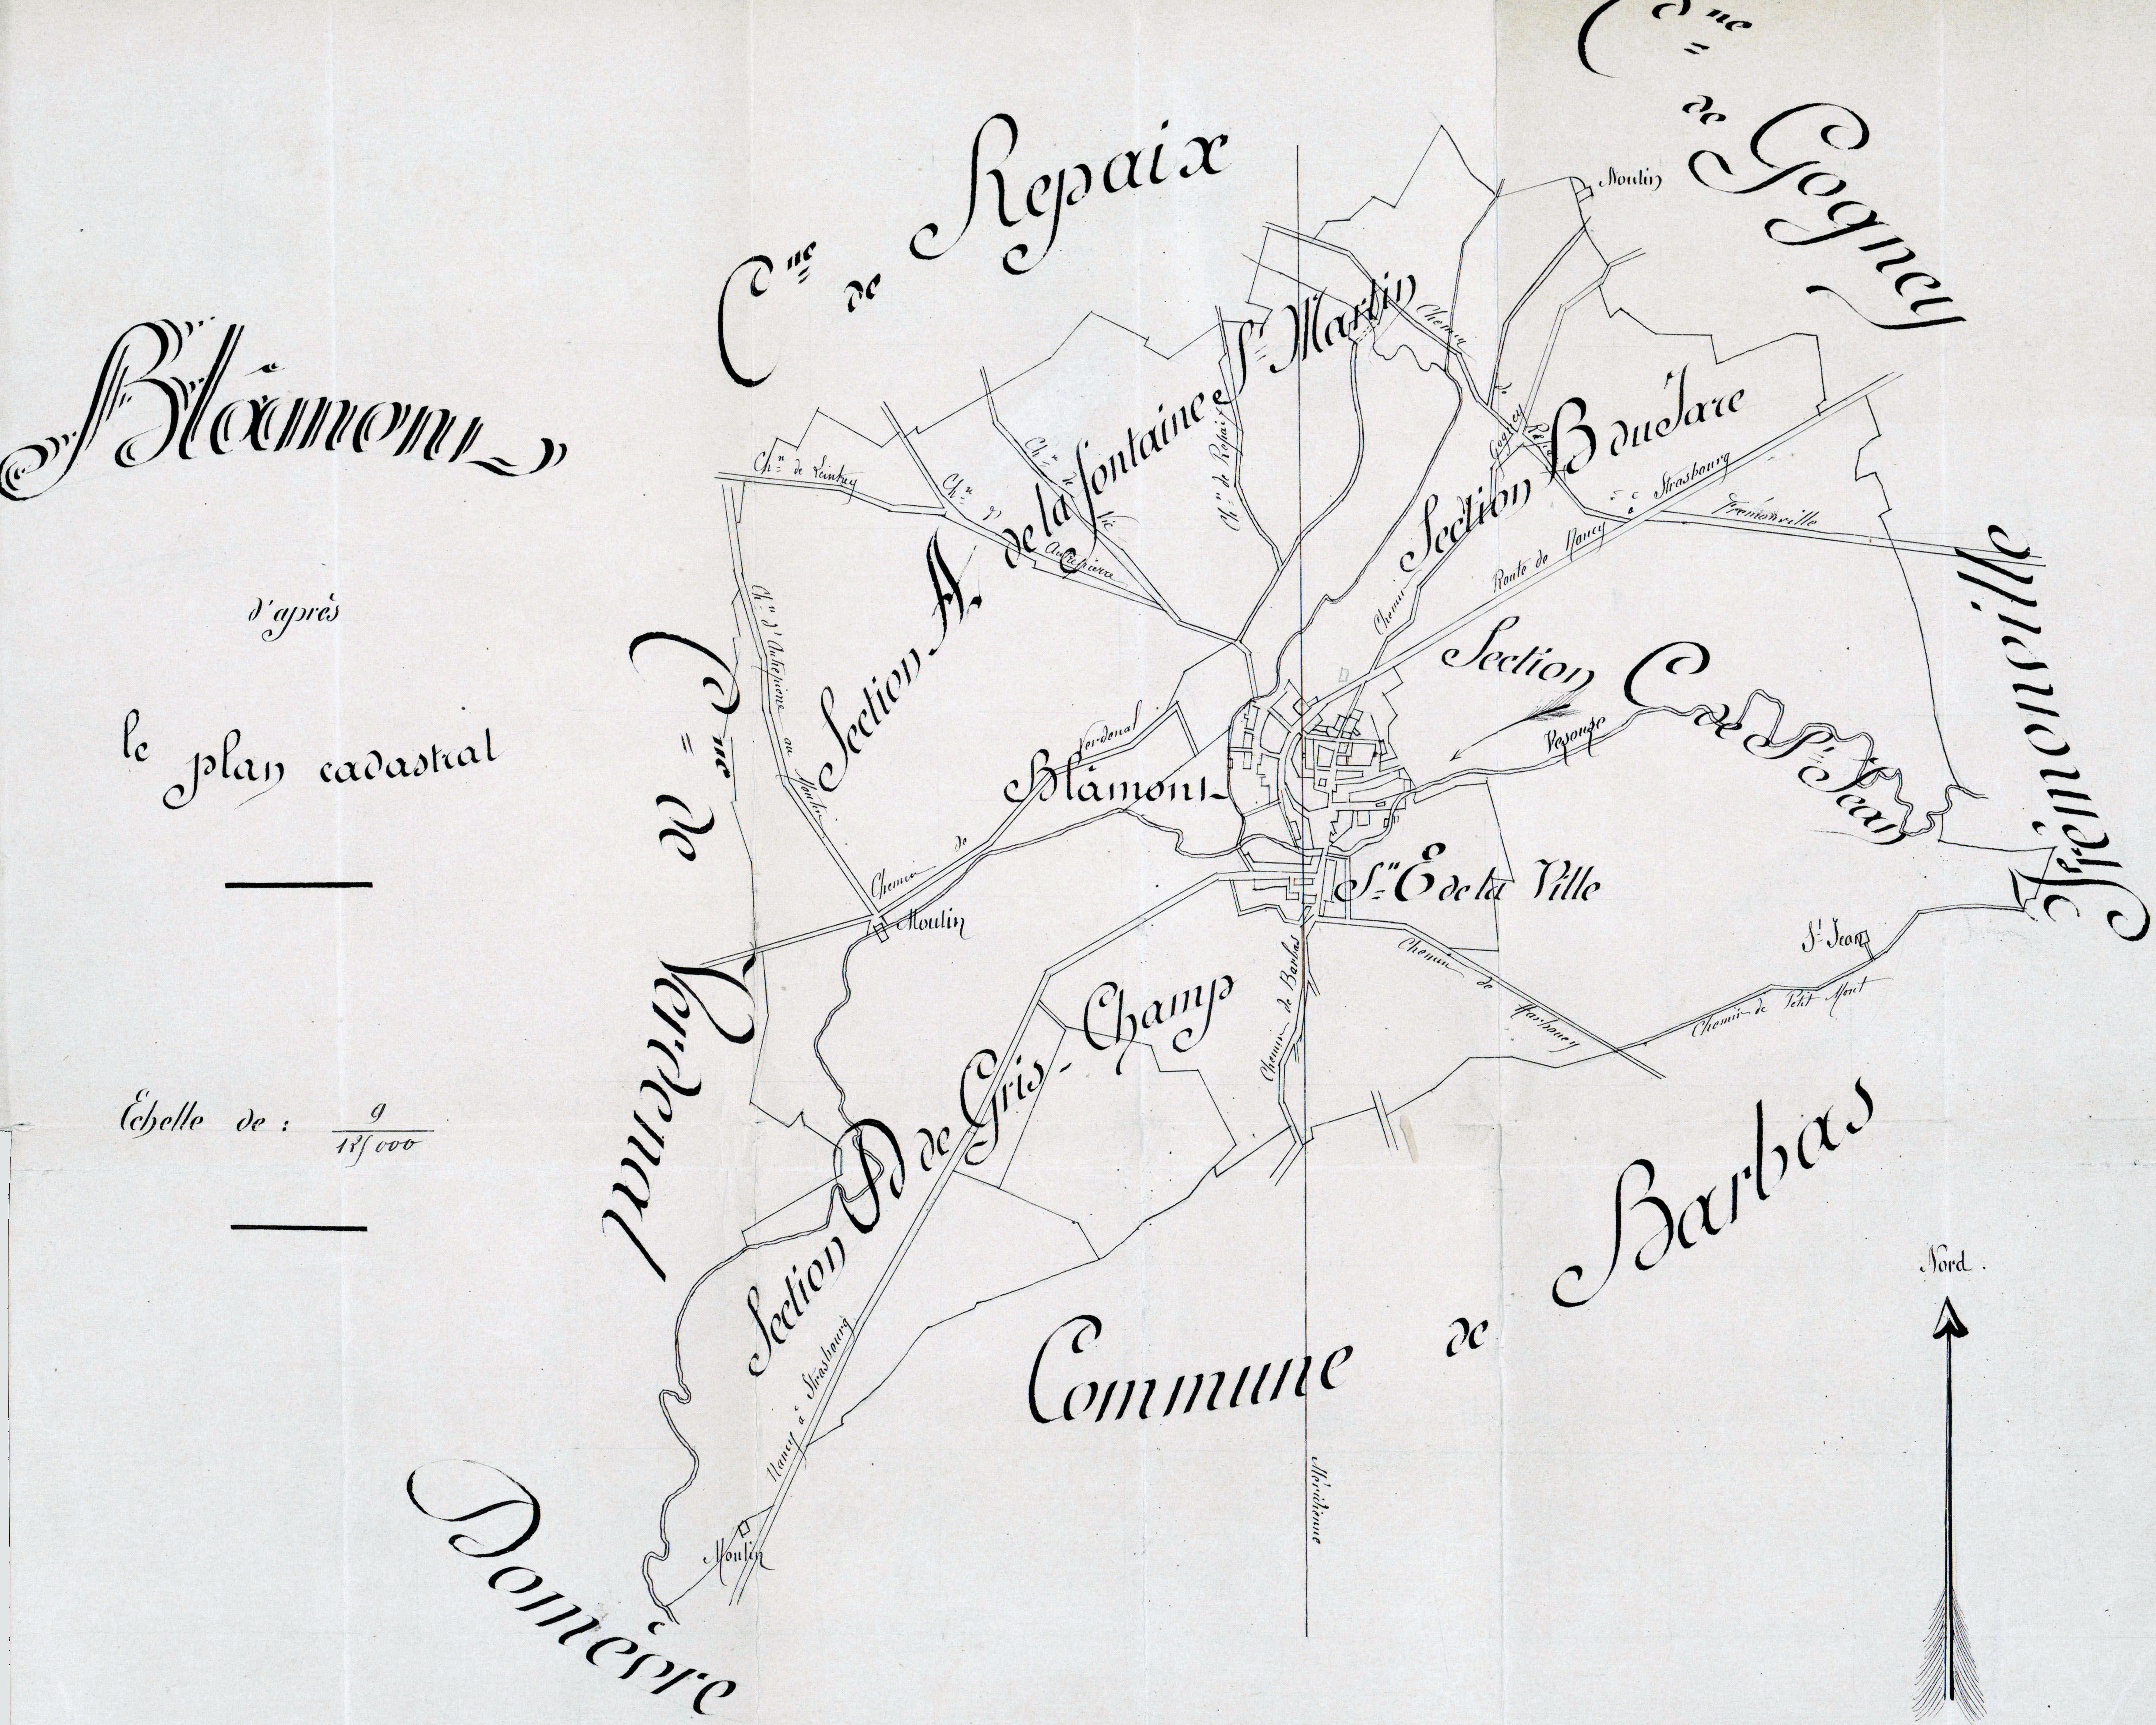 Blâmont
d'après
le plan cadastral
Echelle de : 9/125000
Cne de Repaix
Cne de Gogney
Moulin
Frémonville
Cne de Verdenal
Domèvre
Commune de Barbas
Nord.
Méridienne
Section A. de la fontaine St Martin
Section B du Tare
Section C de St Jean
Section D de Gris-Champ
Sn E de la Ville
Blâmont
Chin de Leintrey
Chin d'Autrepierre
Chin de Vic
Chin de Repaix
Chemin
Chemin de Gogney
Route de Nancy à Strasbourg
Frémonville
Vesouze
Chin d'Autrepierre au Moulin
Chemin de Verdenal
Moulin
Chemin de Barbas
Chemin de Harbouey
Chemin de Petit Mont
St Jean
Nancy à Strasbourg
Moulin